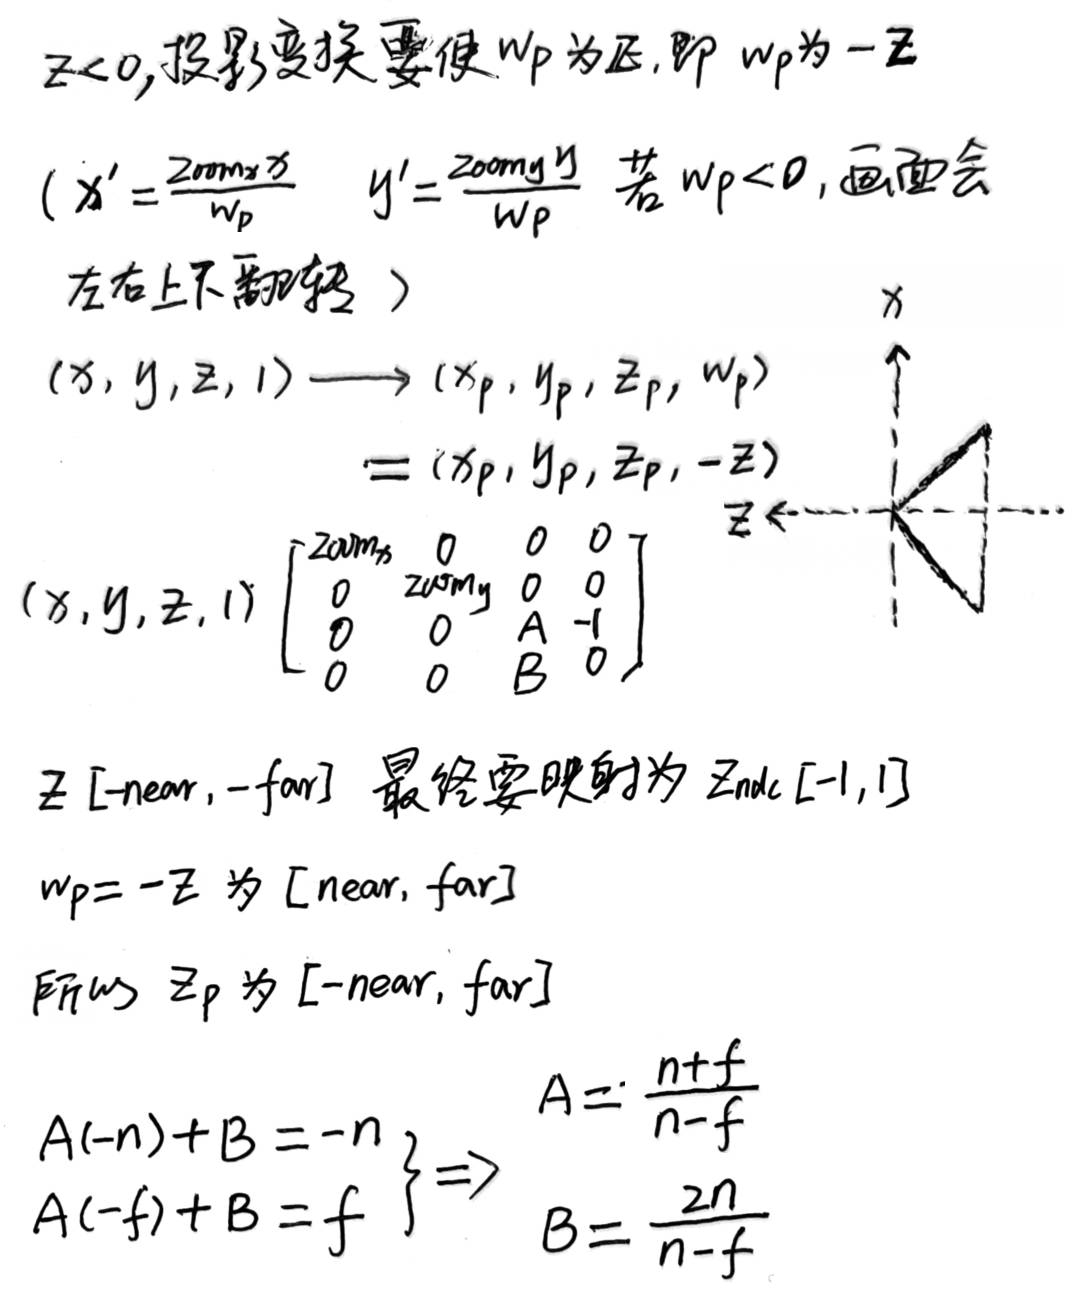 z<0,投影变换要使wp为正,即 wp为-z
(x'=zoomx x/wp y'=zoomy y/wp 若wp<0,画面会
左右上下翻转)
x
(x,y,z,1)⟶(xp,yp,zp,wp)
=(xp,yp,zp,-z)
z
(x,y,z,1)[zoomx 0 0 0
0 zoomy 0 0
0 0 A -1
0 0 B 0]
z[-near,-far] 最终要映射为 zndc[-1,1]
wp=-z 为 [near, far]
所以 zp 为 [-near, far]
A(-n)+B=-n
A(-f)+B=f
}=>
A=n+f/n-f
B=2n/n-f